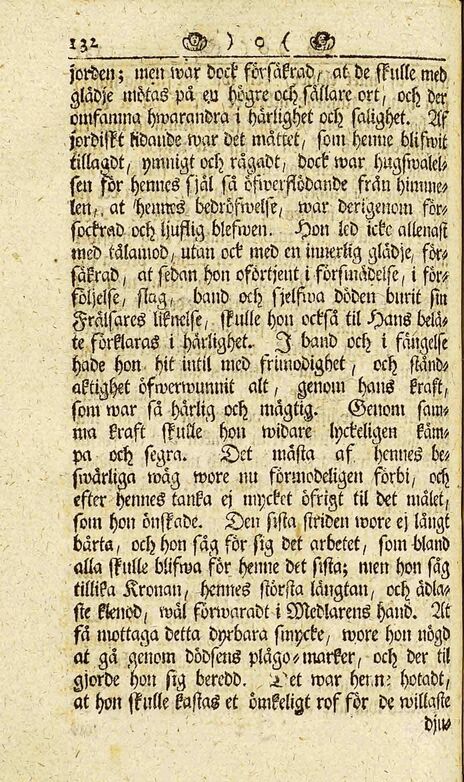 132 ) o (
jorden; men war dock försäkrad, at de skulle med
glädje mötas på en högre och sällare ort, och der
omfamna hwarandra i härlighet och salighet. Af
jordiskt lidande war det mättet, som henne blifwit
tillagdt, ymnigt och rågadt, dock war hugswalel-
sen för hennes själ så öfwerflödande från himme-
len, at hennes bedröfwelse, war derigenom för-
sockrad och ljuflig blefwen. Hon led icke allenast
med tålamod, utan ock med en innerlig glädje, för-
säkrad, at sedan hon oförtjent i försmädelse, i för-
följelse, slag, band och sjelfwa döden burit sin
Frälsares liknelse, skulle hon också til Hans belä-
te förklaras i härlighet. I band och i fängelse
hade hon hit intil med frimodighet, och stånd-
aktighet öfwerwunnit alt, genom hans kraft,
som war så härlig och mägtig. Genom sam-
ma kraft skulle hon widare lyckeligen käm-
pa och segra. Det mästa af hennes be-
swärliga wäg wore nu förmodeligen förbi, och
efter hennes tanka ej mycket öfrigt til det målet,
som hon önskade. Den sista striden wore ej långt
bårta, och hon såg för sig det arbetet, som bland
alla skulle blifwa för henne det sista; men hon såg
tillika Kronan, hennes största långtan, och ädla-
ste klenod, wäl förwaradt i Medlarens hand. At
få mottaga detta dyrbara smycke, wore hon nögd
at gå genom dödsens plågo-marker, och der til
gjorde hon sig beredd. Det war henne hotadt,
at hon skulle kastas et ömkeligt rof för de willaste
dju-